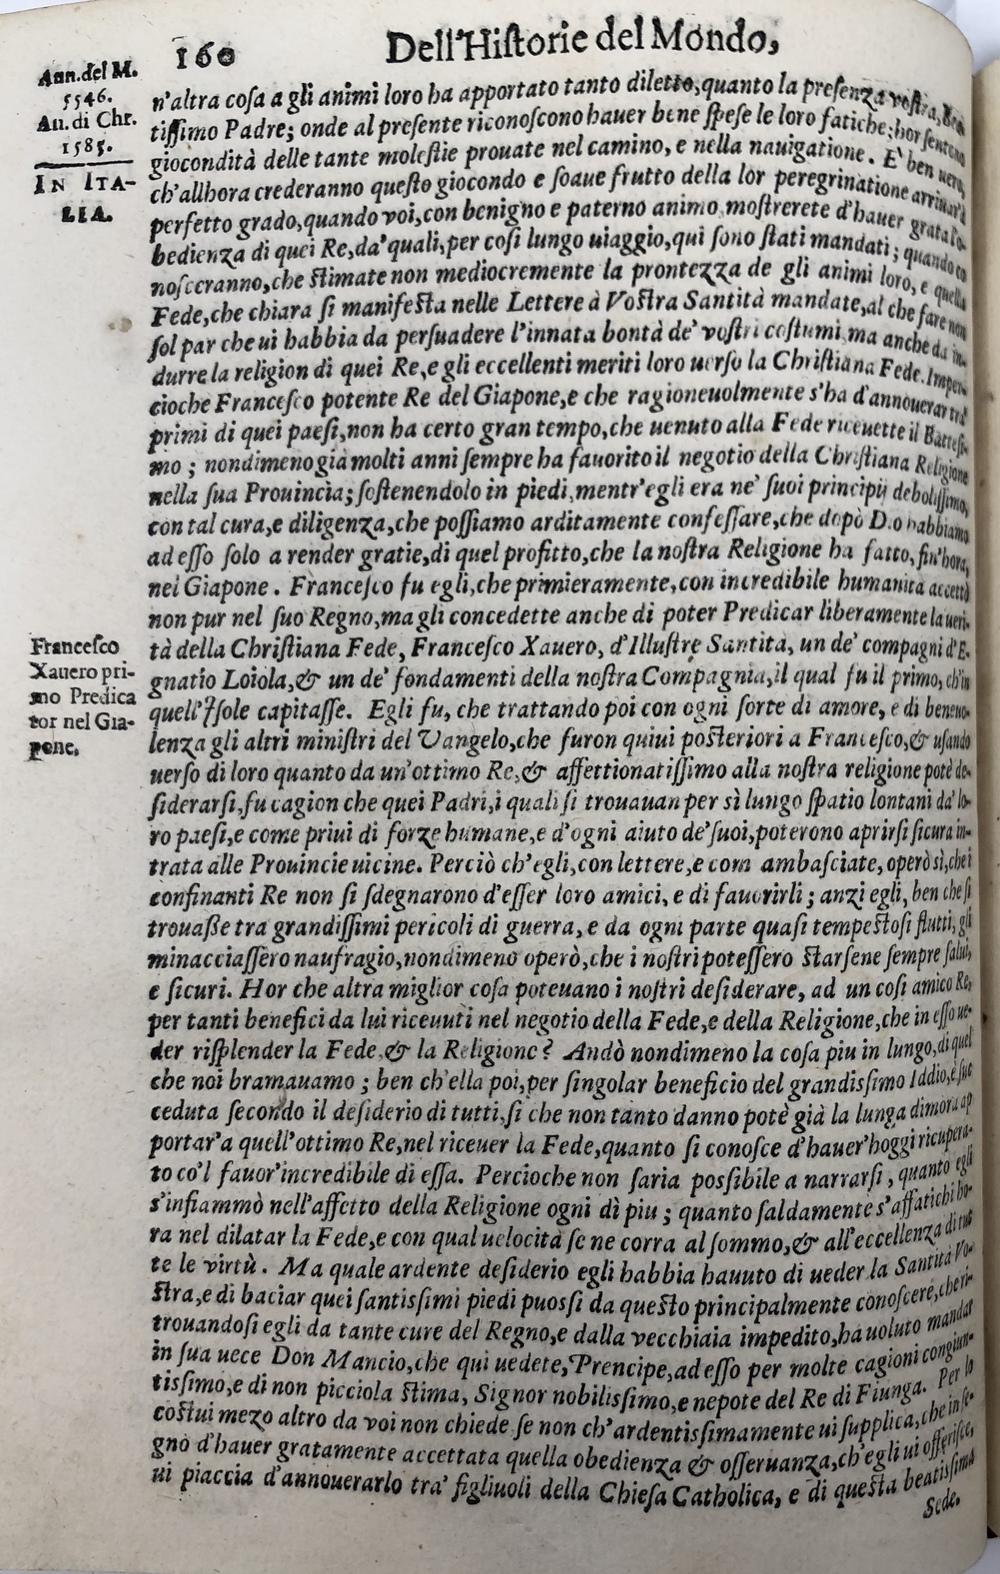 160 Dell'Historie del Mondo,
Ann. del M.
5546.
An. di Chr.
1585.
IN ITA-
LIA.
n'altra cosa a gli animi loro ha apportato tanto diletto, quanto la presenza vostra, Bea
tissimo Padre; onde al presente riconoscono hauer bene spese le loro fatiche; hor sentono
giocondità delle tante molestie prouate nel camino, e nella nauigatione. E' ben uero,
ch'allhora crederanno questo giocondo e soaue frutto della lor peregrinatione arriuar à
perfetto grado, quando voi, con benigno e paterno animo mostrerete d'hauer grata l'o-
bedienza di quei Re, da' quali, per cosi lungo uiaggio, qui sono stati mandati; quando co
nosceranno, che stimate non mediocremente la prontezza de gli animi loro, e quella
Fede, che chiara si manifesta nelle Lettere à Vostra Santità mandate, al che fare non
sol par che ui habbia da persuadere l'innata bontà de' vostri costumi, ma anche da in-
durre la religion di quei Re, e gli eccellenti meriti loro uerso la Christiana Fede. Imper-
cioche Francesco potente Re del Giapone, e che ragioneuolmente s'ha d'annouerar tra'
primi di quei paesi, non ha certo gran tempo, che uenuto alla Fede riceuette il Battesi-
mo; nondimeno già molti anni sempre ha fauorito il negotio della Christiana Religione
nella sua Prouincia; sostenendolo in piedi, mentr'egli era ne' suoi principij debolissimo,
con tal cura, e diligenza, che possiamo arditamente confessare, che dopò Dio habbiamo
ad esso solo a render gratie, di quel profitto, che la nostra Religione ha fatto, fin'hora,
nel Giapone. Francesco fu egli, che primieramente, con incredibile humanità accettò
non pur nel suo Regno, ma gli concedette anche di poter Predicar liberamente la ueri-
tà della Christiana Fede, Francesco Xauero, d'Illustre Santità, un de' compagni d'E-
gnatio Loiola, & un de' fondamenti della nostra Compagnia, il qual fu il primo, ch'in
quell'Isole capitasse. Egli fu, che trattando poi con ogni sorte di amore, e di beneuo-
lenza gli altri ministri del Vangelo, che furon quiui posteriori a Francesco, & usando
uerso di loro quanto da un'ottimo Re, & affettionatissimo alla nostra religione potè de-
siderarsi, fu cagion che quei Padri, i quali si trouauan per sì lungo spatio lontani da' lo-
ro paesi, e come priui di forze humane, e d'ogni aiuto de' suoi, poterono aprirsi sicura in-
trata alle Prouincie uicine. Perciò ch'egli, con lettere, e com ambasciate, operò sì, che i
confinanti Re non si sdegnarono d'esser loro amici, e di fauorirli; anzi egli, ben che si
trouasse tra grandissimi pericoli di guerra, e da ogni parte quasi tempestosi flutti, gli
minacciassero naufragio, nondimeno operò, che i nostri potessero starsene sempre salui,
e sicuri. Hor che altra miglior cosa poteuano i nostri desiderare, ad un cosi amico Re,
per tanti benefici da lui riceuuti nel negotio della Fede, e della Religione, che in esso ue-
der risplender la Fede, & la Religione? Andò nondimeno la cosa piu in lungo, di quel
che noi bramauamo; ben ch'ella poi, per singolar beneficio del grandissimo Iddio, è suc
ceduta secondo il desiderio di tutti, si che non tanto danno potè già la lunga dimora ap
portar'a quell'ottimo Re, nel riceuer la Fede, quanto si conosce d'hauer'hoggi ricupera-
to co'l fauor'incredibile di essa. Percioche non saria possibile a narrarsi, quanto egli
s'infiammò nell'affetto della Religione ogni dì piu; quanto saldamente s'affatichi ho-
ra nel dilatar la Fede, e con qual uelocità se ne corra al sommo, & all'eccellenza di tut
te le virtù. Ma quale ardente desiderio egli habbia hauuto di ueder la Santità Vo-
stra, e di baciar quei santissimi piedi puossi da questo principalmente conoscere, che ri-
trouandosi egli da tante cure del Regno, e dalla vecchiaia impedito, ha uoluto mandar
in sua uece Don Mancio, che qui uedete, Prencipe, ad esso per molte cagioni congiun-
tissimo, e di non picciola stima, Signor nobilissimo, e nepote del Re di Fiunga. Per lo
costui mezo altro da voi non chiede se non ch'ardentissimamente ui supplica, che in se-
gno d'hauer gratamente accettata quella obedienza & osseruanza, ch'egli ui offerisce,
ui piaccia d'annouerarlo tra' figliuoli della Chiesa Catholica, e di questa beatissima
Sede.
Francesco
Xauero pri-
mo Predica
tor nel Gia-
pone.